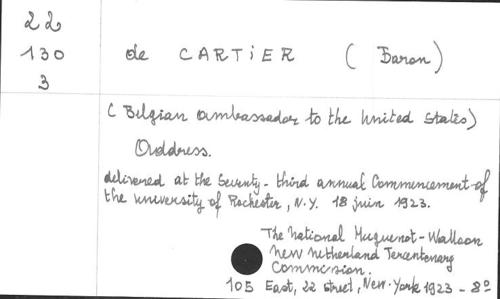 22
130
3
de CARTIER ( Baron)
( Belgian ambassador to the United States)
Address.
delivered at the Seventy-third annual Commencement of
the university of Rochester, N.Y. 18 juin 1923.
The National Huguenot-Walloon
New Netherland Tercentenary
Commission.
105 East, 22 street, New-York 1923 - 8°